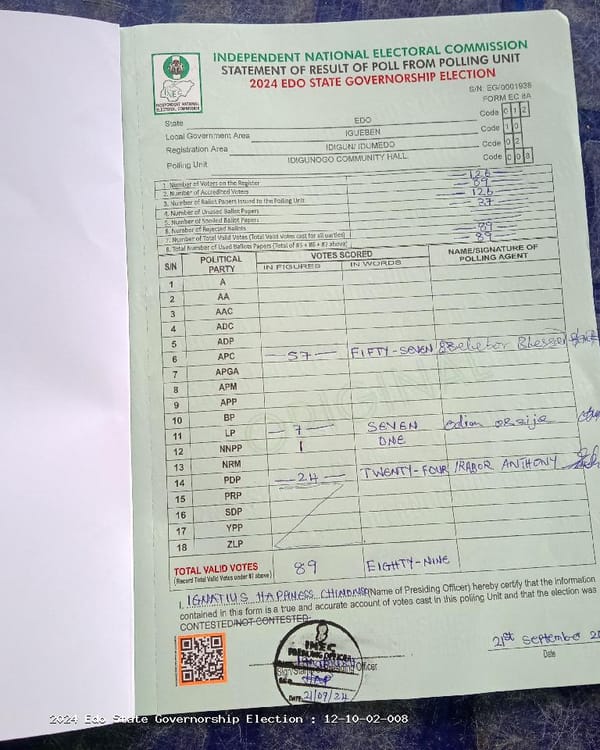 INDEPENDENT NATIONAL ELECTORAL COMMISSION
STATEMENT OF RESULT OF POLL FROM POLLING UNIT
2024 EDO STATE GOVERNORSHIP ELECTION
S/N: EG/0001938
FORM EC 8A
INEC
INDEPENDENT NATIONAL ELECTORAL COMMISSION
State EDO Code 0 1 2
Local Government Area IGUEBEN Code 1 0
Registration Area IDIGUN/ IDUMEDO Code 0 2
Polling Unit IDIGUNOGO COMMUNITY HALL. Code 0 0 8
1. Number of Voters on the Register 126
2. Number of Accredited Voters 89
3. Number of Ballot Papers Issued to the Polling Unit 126
4. Number of Unused Ballot Papers 37
5. Number of Spoiled Ballot Papers
6. Number of Rejected Ballots
7. Number of Total Valid Votes (Total Valid Votes cast for all parties) 89
8. Total Number of Used Ballots Papers (Total of #5 + #6 + #7 above) 89
S/N POLITICAL PARTY VOTES SCORED NAME/SIGNATURE OF POLLING AGENT
IN FIGURES IN WORDS
1 A
2 AA
3 AAC
4 ADC
5 ADP
6 APC 57 FIFTY-SEVEN
7 APGA
8 APM
9 APP
10 BP
11 LP 7 SEVEN
12 NNPP 1 ONE
13 NRM
14 PDP 24 TWENTY-FOUR IRABOR ANTHONY
15 PRP
16 SDP
17 YPP
18 ZLP
TOTAL VALID VOTES 89 EIGHTY-NINE
(Record Total Valid Votes under #7 above)
I, IGNATIUS HAPPINESS (Name of Presiding Officer) hereby certify that the information
contained in this form is a true and accurate account of votes cast in this polling Unit and that the election was
CONTESTED/NOT CONTESTED.
INEC
PRESIDING OFFICER
21st September 20
Date
DATE 21/09/24
2024 Edo State Governorship Election : 12-10-02-008